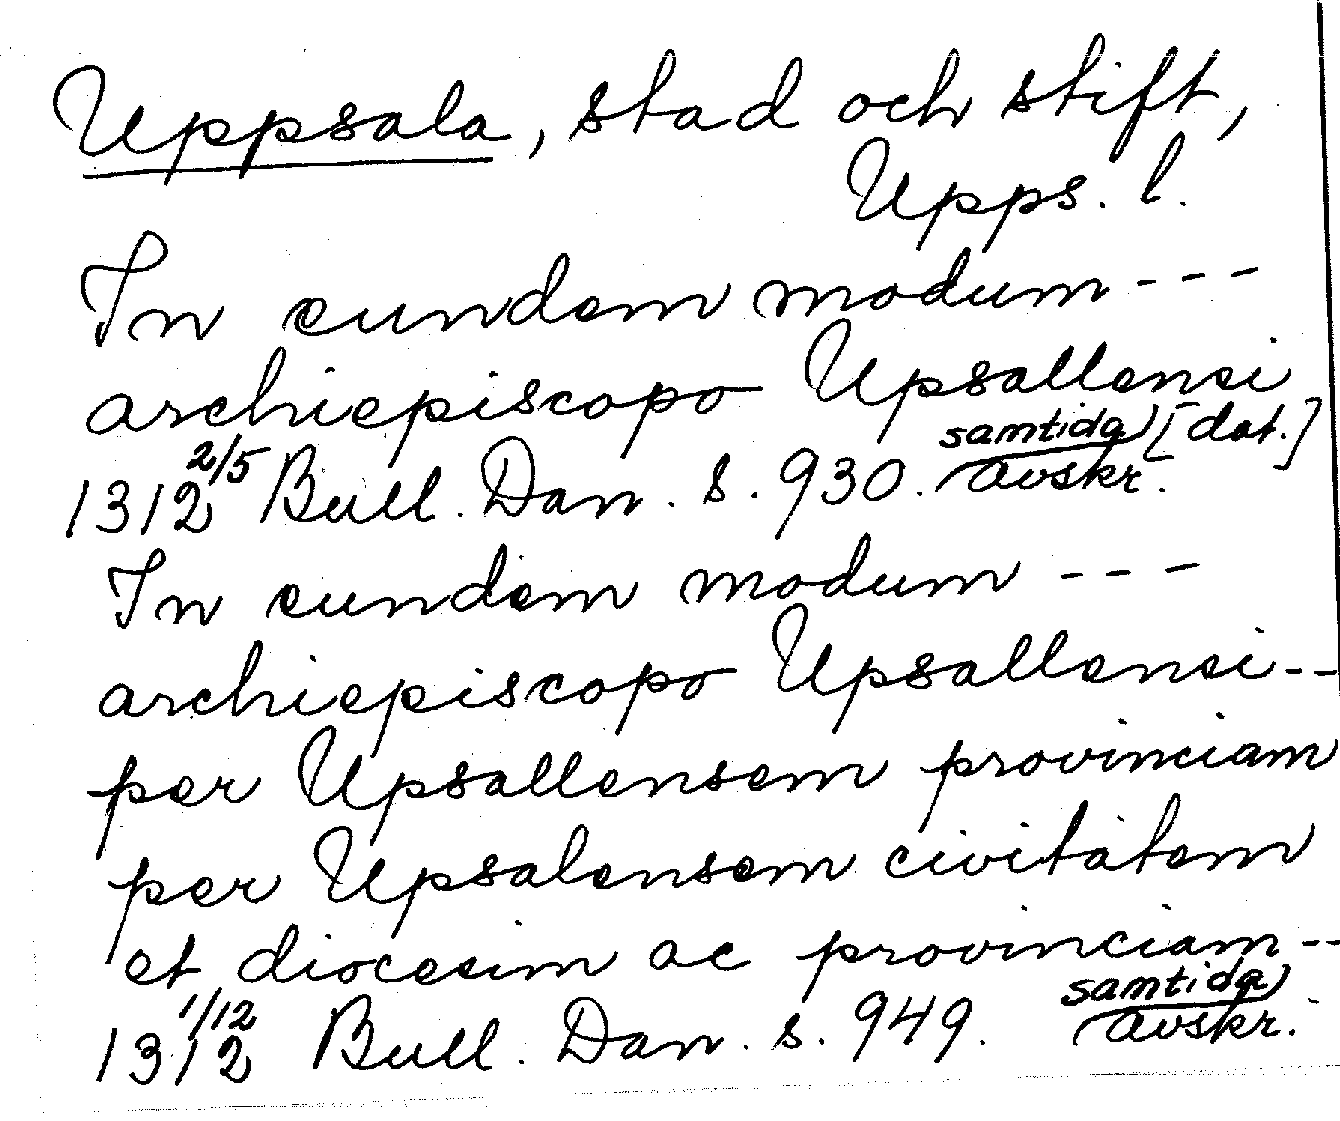 Uppsala, stad och stift,
Upps. l.
In eundem modum ---
archiepiscopo Upsallensi
1312 2/5 Bull. Dan. s. 930. samtida avskr. [dat.]
In eundem modum ---
archiepiscopo Upsallensi--
per Upsallensem provinciam
per Upsalensem civitatem
et diocesim ac provinciam--
1312 1/12 Bull. Dan. s. 949. samtida avskr.